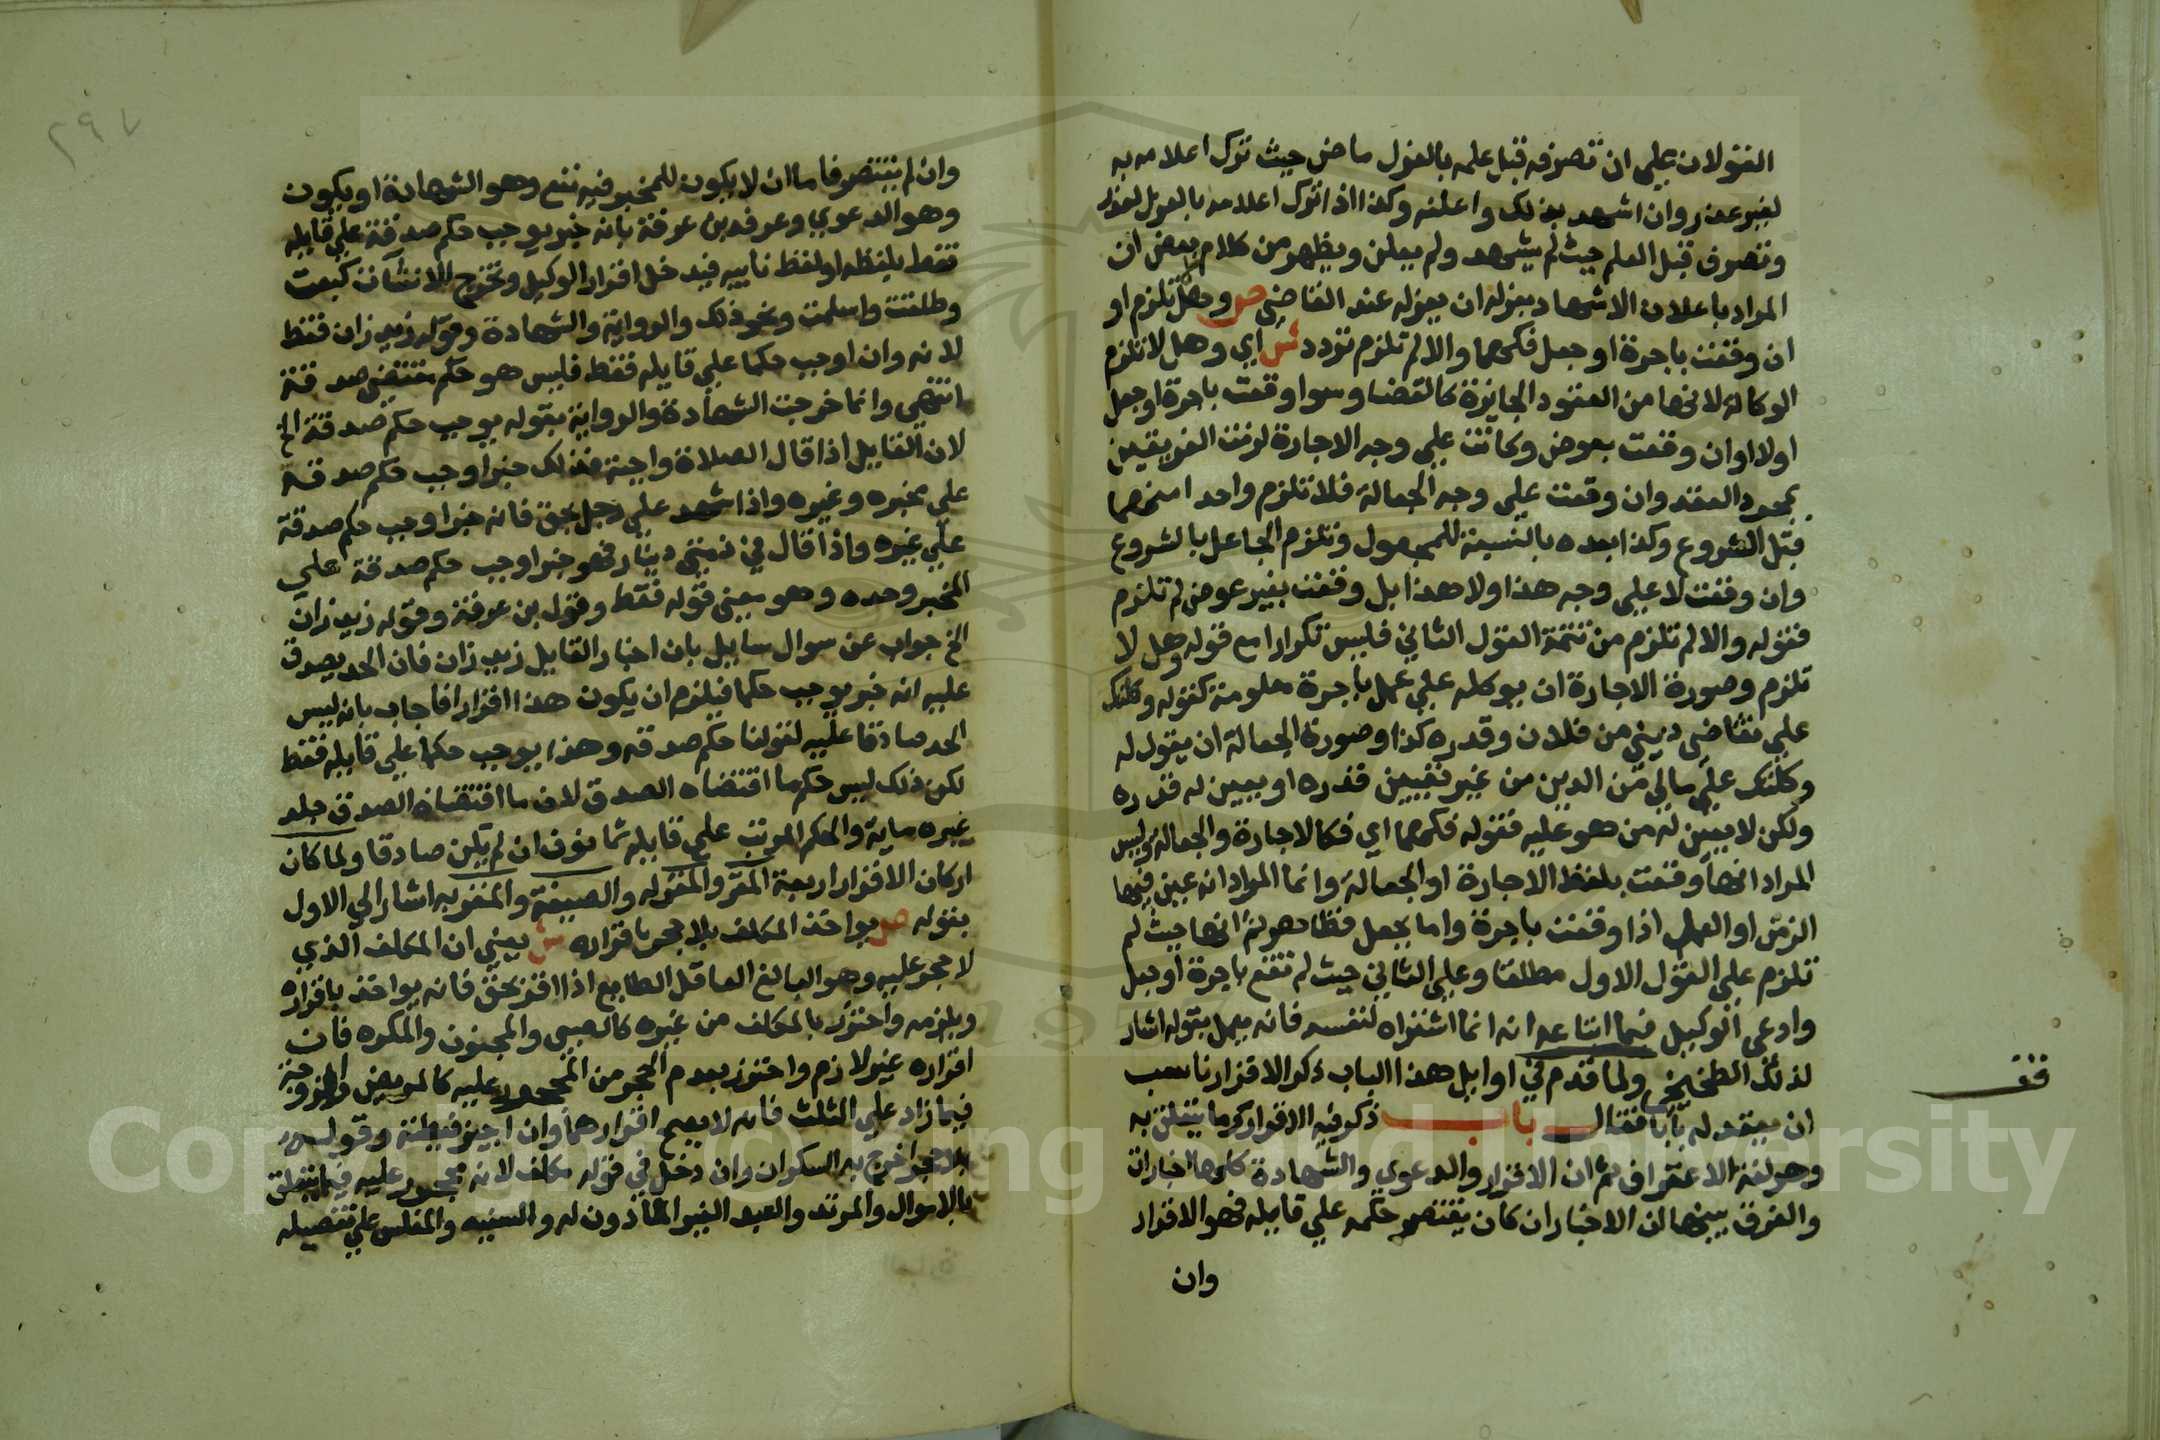 القولان علي ان تصرفه قبل علمه بالعزل ماض حيث ترك اعلامه به
لغير عذر وان اشهد بذلك واعلنه وكذا اذا ترك اعلامه بالعزل لعذر
وتصرف قبل العلم حيث لم يشهد ولم يعلن ويظهر من كلام بعض ان
المراد باعلان الاشهاد بعزله ان يعزله عند القاضي ص وهل تلزم او
ان وقعت باجرة او جعل فكهما والا لم تلزم تردد ش اي وهل لا تلزم
الوكالة لانها من العقود الجايزة كالقضا وسوا وقعت باجرة او جعل
اولا او ان وقعت بعوض وكانت علي وجه الاجارة لزمت الفريقين
بمجرد العقد وان وقعت علي وجه الجعالة فلا تلزم واحدا منهما
قبل الشروع وكذا بعده بالنسبة للمجعول وتلزم الجاعل بالشروع
وان وقعت لا علي وجه هذا ولا هذا بل وقعت بغير عوض لم تلزم
فقوله والا لم تلزم من تتمة القول الثاني فليس تكرارا مع قوله وهل لا
تلزم وصورة الاجارة ان يوكله علي عمل باجرة معلومة كقوله وكلتك
علي تقاضي ديني من فلان وقدره كذا وصورة الجعالة ان يقول له
وكلتك علي مالي من الدين من غير تعيين قدره او يبين له قدره
ولكن لا يبين له من هو عليه فقوله فكهما اي فكالاجارة والجعالة وليس
المراد انها وقعت بلفظ الاجارة او الجعالة وانما المراد انه عين فيها
الزمن او العمل اذا وقعت باجرة واما بجعل فظاهر ثم انها حيث لم
تلزم علي القول الاول مطلقا وعلي الثاني حيث لم تقع باجرة او جعل
وادعي الوكيل فيما ابتاعه انه انما اشتراه لنفسه فانه يعمل بقوله اشار
لذلك الطخيخي ولما قدم في اوايل هذا الباب ذكر الاقرار ناسب
ان يعقد له بابا فقال باب ذكر فيه الاقرار وما يتعلق به
وهو لغة الاعتراف ثم ان الاقرار والدعوي والشهادة كلها اخبارات
والفرق بينها ان الاخبار ان كان يقتصر حكمه علي قايله فهو الاقرار
وان
قف
٢٩٧
وان لم يقتصر فاما ان لا يكون للمخبر فيه نفع وهو الشهادة او يكون
وهو الدعوي وعرفه بن عرفة بانه خبر يوجب حكم صدقه علي قايله
فقط بلفظه او لفظ نايبه فيدخل اقرار الوكيل وتخرج الانشاات كبعت
وطلقت واسلمت ونحو ذلك والرواية والشهادة وقوله زيد زان فقط
لانه وان اوجب حكما علي قايله فقط فليس هو حكم مقتضي صدقه
انتهي وانما خرجت الشهادة والرواية بقوله يوجب حكم صدقه الخ
لان القايل اذا قال الصلاة واجبة فذلك خبر اوجب حكم صدقه
علي مخبره وغيره واذا شهد علي رجل بحق فانه خبر اوجب حكم صدقه
علي غيره واذا قال في ذمتي دينار فهو خبر اوجب حكم صدقه علي
المخبر وحده وهو معني قوله فقط وقول بن عرفة وقوله زيد زان
الخ جواب عن سوال سايل بان اخبار القايل زيد زان فان الحد يصدق
عليه انه خبر يوجب حكما فيلزم ان يكون هذا اقرارا فاجاب بانه ليس
الحد صادقا عليه لقولنا حكم صدقه وهذا يوجب حكما علي قايله فقط
لكن ذلك ليس حكم ما اقتضاه الصدق لان ما اقتضاه الصدق جلد
غيره ماية والحكم المرتب علي قايله ثمانون ان لم يكن صادقا ولما كان
اركان الاقرار اربعة المقر والمقر له والصيغة والمقر به اشار الي الاول
بقوله ص يواخذ المكلف بلا حجر باقراره ش يعني ان المكلف الذي
لا حجر عليه وهو البالغ العاقل الطايع اذا اقر بحق فانه يواخذ باقراره
ويلزمه واحترز بالمكلف من غيره كالصبي والمجنون والمكره فان
اقراره غير لازم واحترز بعدم الحجر من المحجور عليه كالمريض والزوجة
فيما زاد علي الثلث فانه لا يصح اقرارهما وان اجيز فعطية وقوله
بلا حجر اخرج به السكران وان دخل في قوله مكلف لانه محجور عليه فيما يتعلق
بالاموال والمرتد والعبد الغير الماذون له والسفيه والمفلس علي تفصيله
Copyright © King Saud University